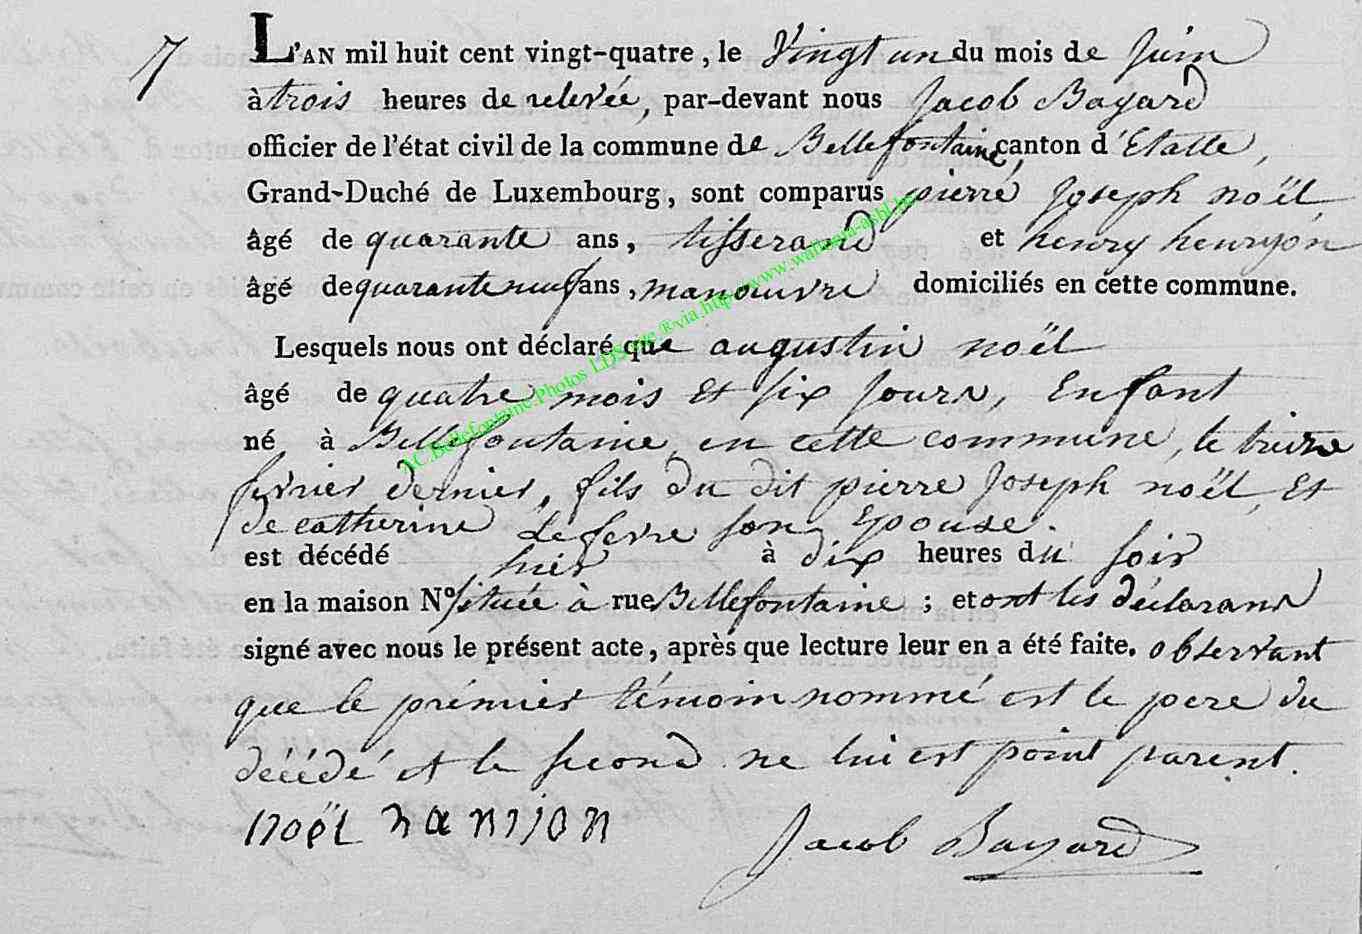 7
L'AN mil huit cent vingt-quatre, le Vingt un du mois de Juin
à trois heures de relevée, par-devant nous Jacob Bayard
officier de l'état civil de la commune de Bellefontaine, canton d'Etalle,
Grand-Duché de Luxembourg, sont comparus pierre Joseph noël
âgé de quarante ans, tisserand et henry henryon
âgé de quarante neuf ans, manoeuvre domiciliés en cette commune.
Lesquels nous ont déclaré que augustin noël
âgé de quatre mois et six Jours, Enfant
né à Bellefontaine en cette commune, le
fevrier dernier, fils du dit pierre Joseph noël, Et
de catherine Lefevre son Epouse.
est décédé hier à dix heures du soir
en la maison N.º située à rue Bellefontaine ; et ont les déclarans
signé avec nous le présent acte, après que lecture leur en a été faite. observant
que le prémier témoin nommé est le pere du
décédé et le second ne lui est point parent.
noël
Jacob Bayard
AC.Bellefontaine.Photos LDS.